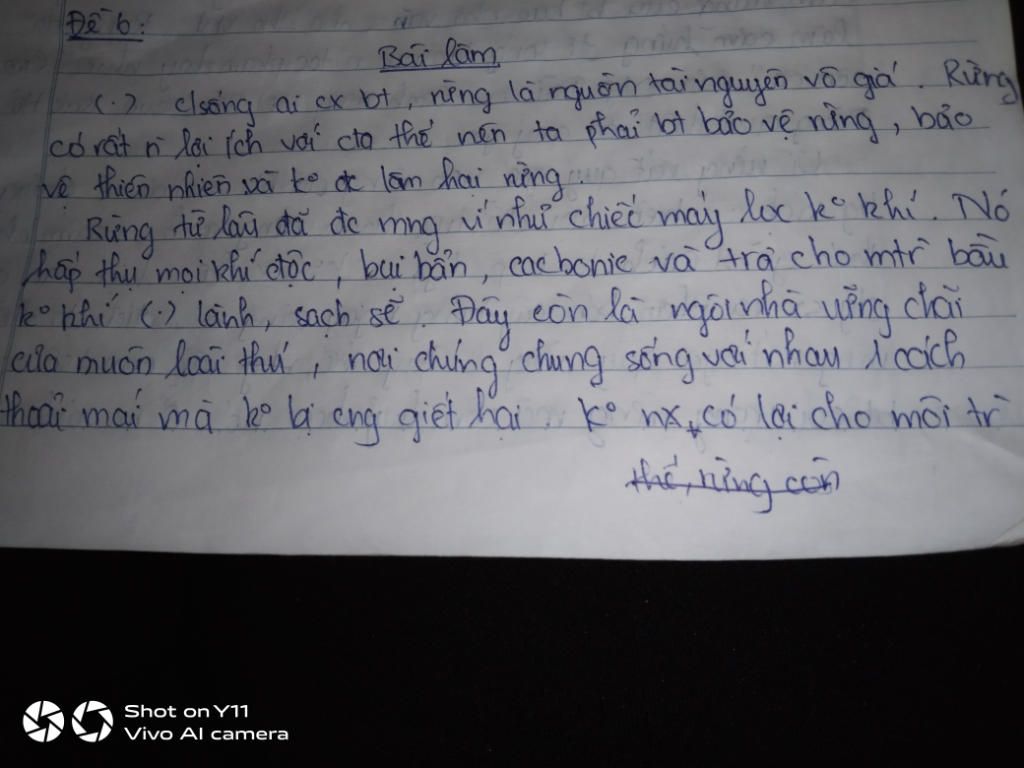 Đề 6:
Bài làm
(.) c/sống ai cx bt, rừng là nguồn tài nguyên vô giá. Rừng
có rất n` lợi ích với cta thế nên ta phải bt bảo vệ rừng, bảo
vệ thiên nhiên và kº đc làm hại rừng.
Rừng từ lâu đã đc mng ví như chiếc máy lọc kº khí. Nó
hấp thụ mọi khí độc, bụi bẩn, cacbonic và trả cho mtr` bầu
kº khí (.) lành, sạch sẽ. Đây còn là ngôi nhà vững chãi
của muôn loài thú, nơi chúng chung sống với nhau 1 cách
thoải mái mà kº bị cng giết hại. kº nx, có lợi cho môi tr`
thế, rừng còn
Shot on Y11
Vivo AI camera